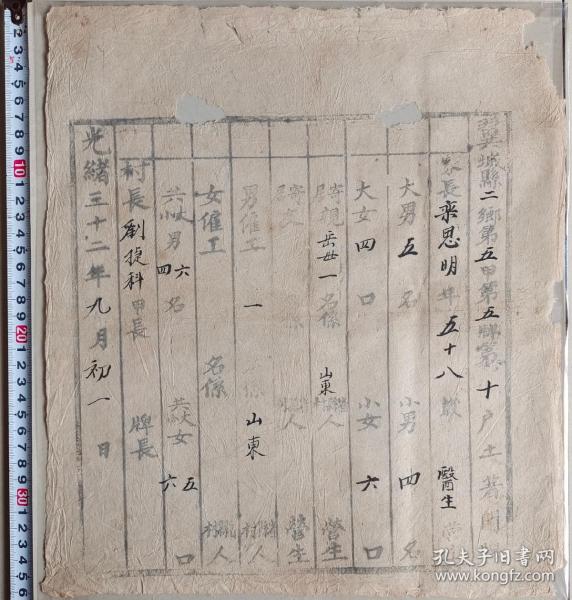 翼城縣二鄉第五甲第五牌第十户土著
家長栾思明年五十八歲 醫生
大男五名 小男四名
大女四口 小女六口
寄居親 岳母一名係山東人 營生
寄居友 人 營生
男僱工一 山東 人
女僱工 名係 人
共大男六名 共大女五口
小四 小六
村長劉捷科甲長 牌長
光緒三十二年九月初一日
孔夫子旧书网
www.kongfz.com